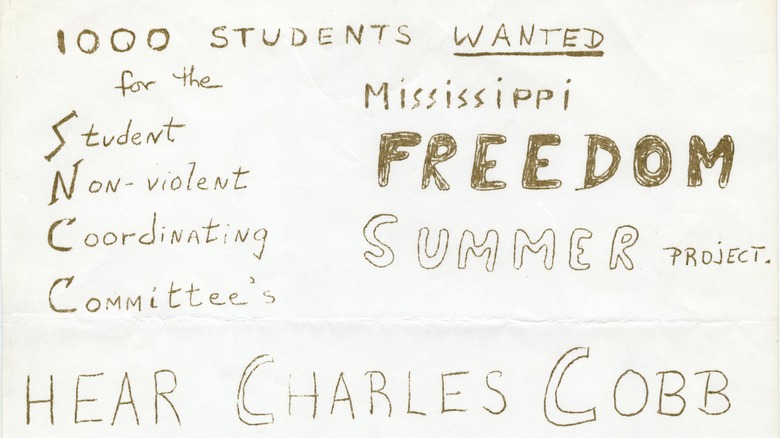 1000 STUDENTS WANTED
for the
Student
Non-violent
Coordinating
Committee's
Mississippi
FREEDOM
SUMMER PROJECT.
HEAR CHARLES COBB